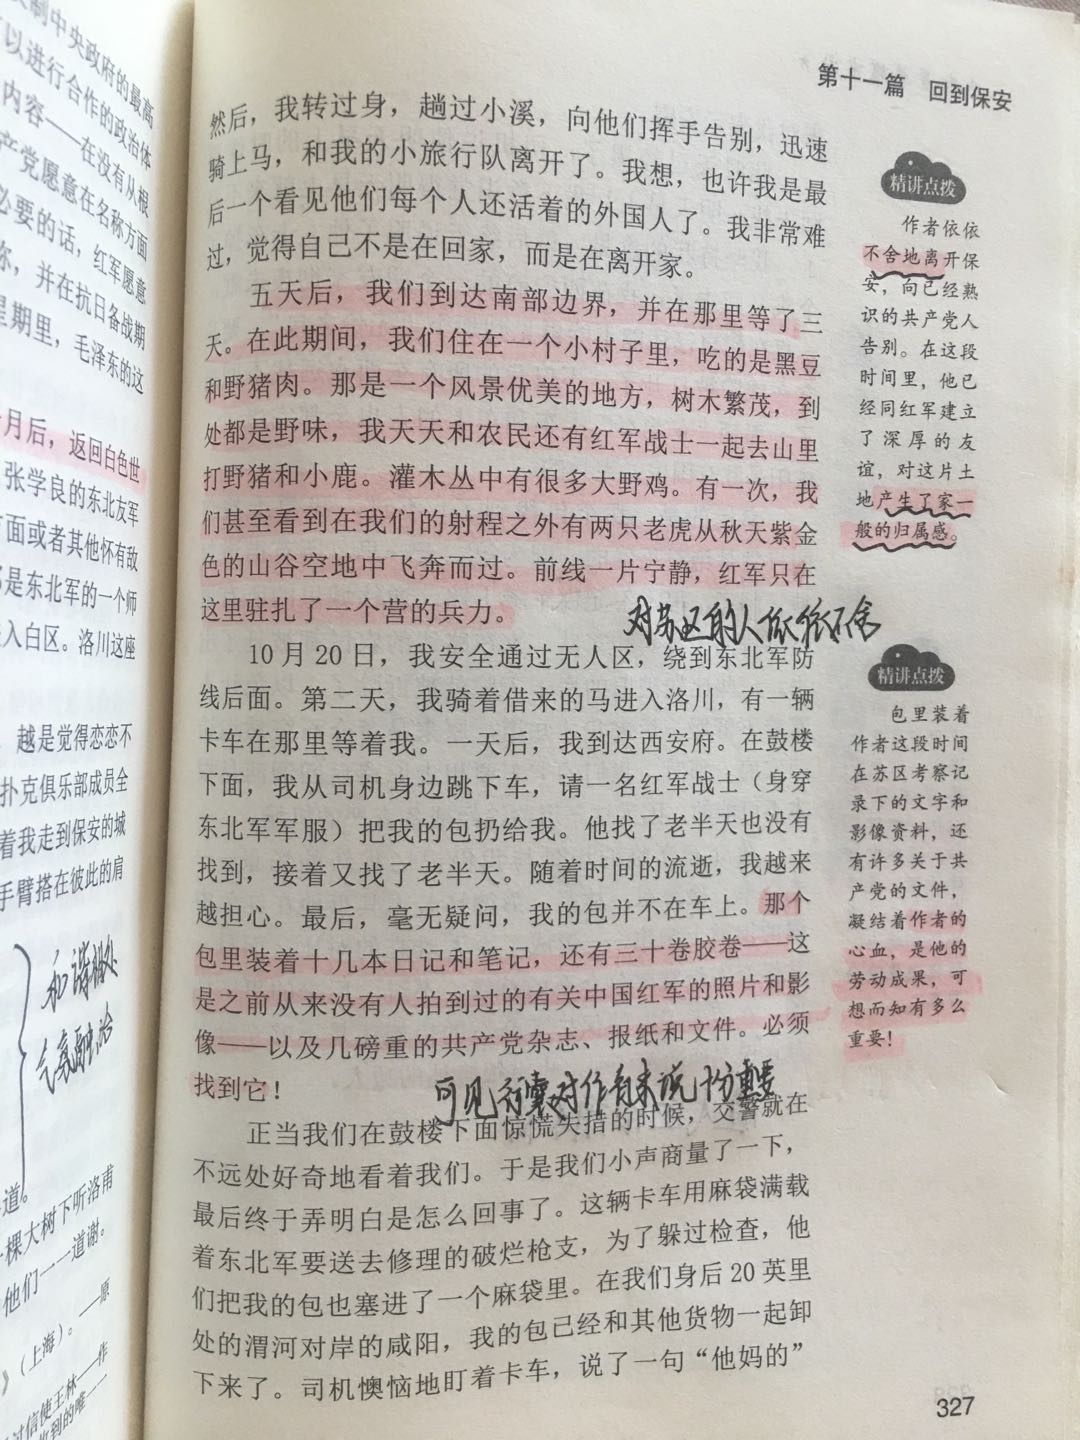 制中央政府的最高
以进行合作的政治体
内容——在没有从根
产党愿意在名称方面
必要的话，红军愿意
尔，并在抗日备战期
星期里，毛泽东的这
月后，返回白色世
张学良的东北友军
面或者其他怀有敌
是东北军的一个师
入白区。洛川这座
越是觉得恋恋不
扑克俱乐部成员全
着我走到保安的城
手臂搭在彼此的肩
和谐相处
气氛融洽
道。
棵大树下听洛甫
他们一一道谢。
——原
》（上海）。
过信使王林——作
收到的唯一
第十一篇 回到保安
然后，我转过身，趟过小溪，向他们挥手告别，迅速
骑上马，和我的小旅行队离开了。我想，也许我是最
后一个看见他们每个人还活着的外国人了。我非常难
过，觉得自己不是在回家，而是在离开家。
五天后，我们到达南部边界，并在那里等了三
天。在此期间，我们住在一个小村子里，吃的是黑豆
和野猪肉。那是一个风景优美的地方，树木繁茂，到
处都是野味，我天天和农民还有红军战士一起去山里
打野猪和小鹿。灌木丛中有很多大野鸡。有一次，我
们甚至看到在我们的射程之外有两只老虎从秋天紫金
色的山谷空地中飞奔而过。前线一片宁静，红军只在
这里驻扎了一个营的兵力。
对苏区的人依依不舍
10月20日，我安全通过无人区，绕到东北军防
线后面。第二天，我骑着借来的马进入洛川，有一辆
卡车在那里等着我。一天后，我到达西安府。在鼓楼
下面，我从司机身边跳下车，请一名红军战士（身穿
东北军军服）把我的包扔给我。他找了老半天也没有
找到，接着又找了老半天。随着时间的流逝，我越来
越担心。最后，毫无疑问，我的包并不在车上。那个
包里装着十几本日记和笔记，还有三十卷胶卷——这
是之前从来没有人拍到过的有关中国红军的照片和影
像——以及几磅重的共产党杂志、报纸和文件。必须
找到它！
可见行囊对作者来说十分重要
正当我们在鼓楼下面惊慌失措的时候，交警就在
不远处好奇地看着我们。于是我们小声商量了一下，
最后终于弄明白是怎么回事了。这辆卡车用麻袋满载
着东北军要送去修理的破烂枪支，为了躲过检查，他
们把我的包也塞进了一个麻袋里。在我们身后20英里
处的渭河对岸的咸阳，我的包已经和其他货物一起卸
下来了。司机懊恼地盯着卡车，说了一句“他妈的”
精讲点拨
作者依依
不舍地离开保
安，向已经熟
识的共产党人
告别。在这段
时间里，他已
经同红军建立
了深厚的友
谊，对这片土
地产生了家一
般的归属感。
精讲点拨
包里装着
作者这段时间
在苏区考察记
录下的文字和
影像资料，还
有许多关于共
产党的文件，
凝结着作者的
心血，是他的
劳动成果，可
想而知有多么
重要！
327